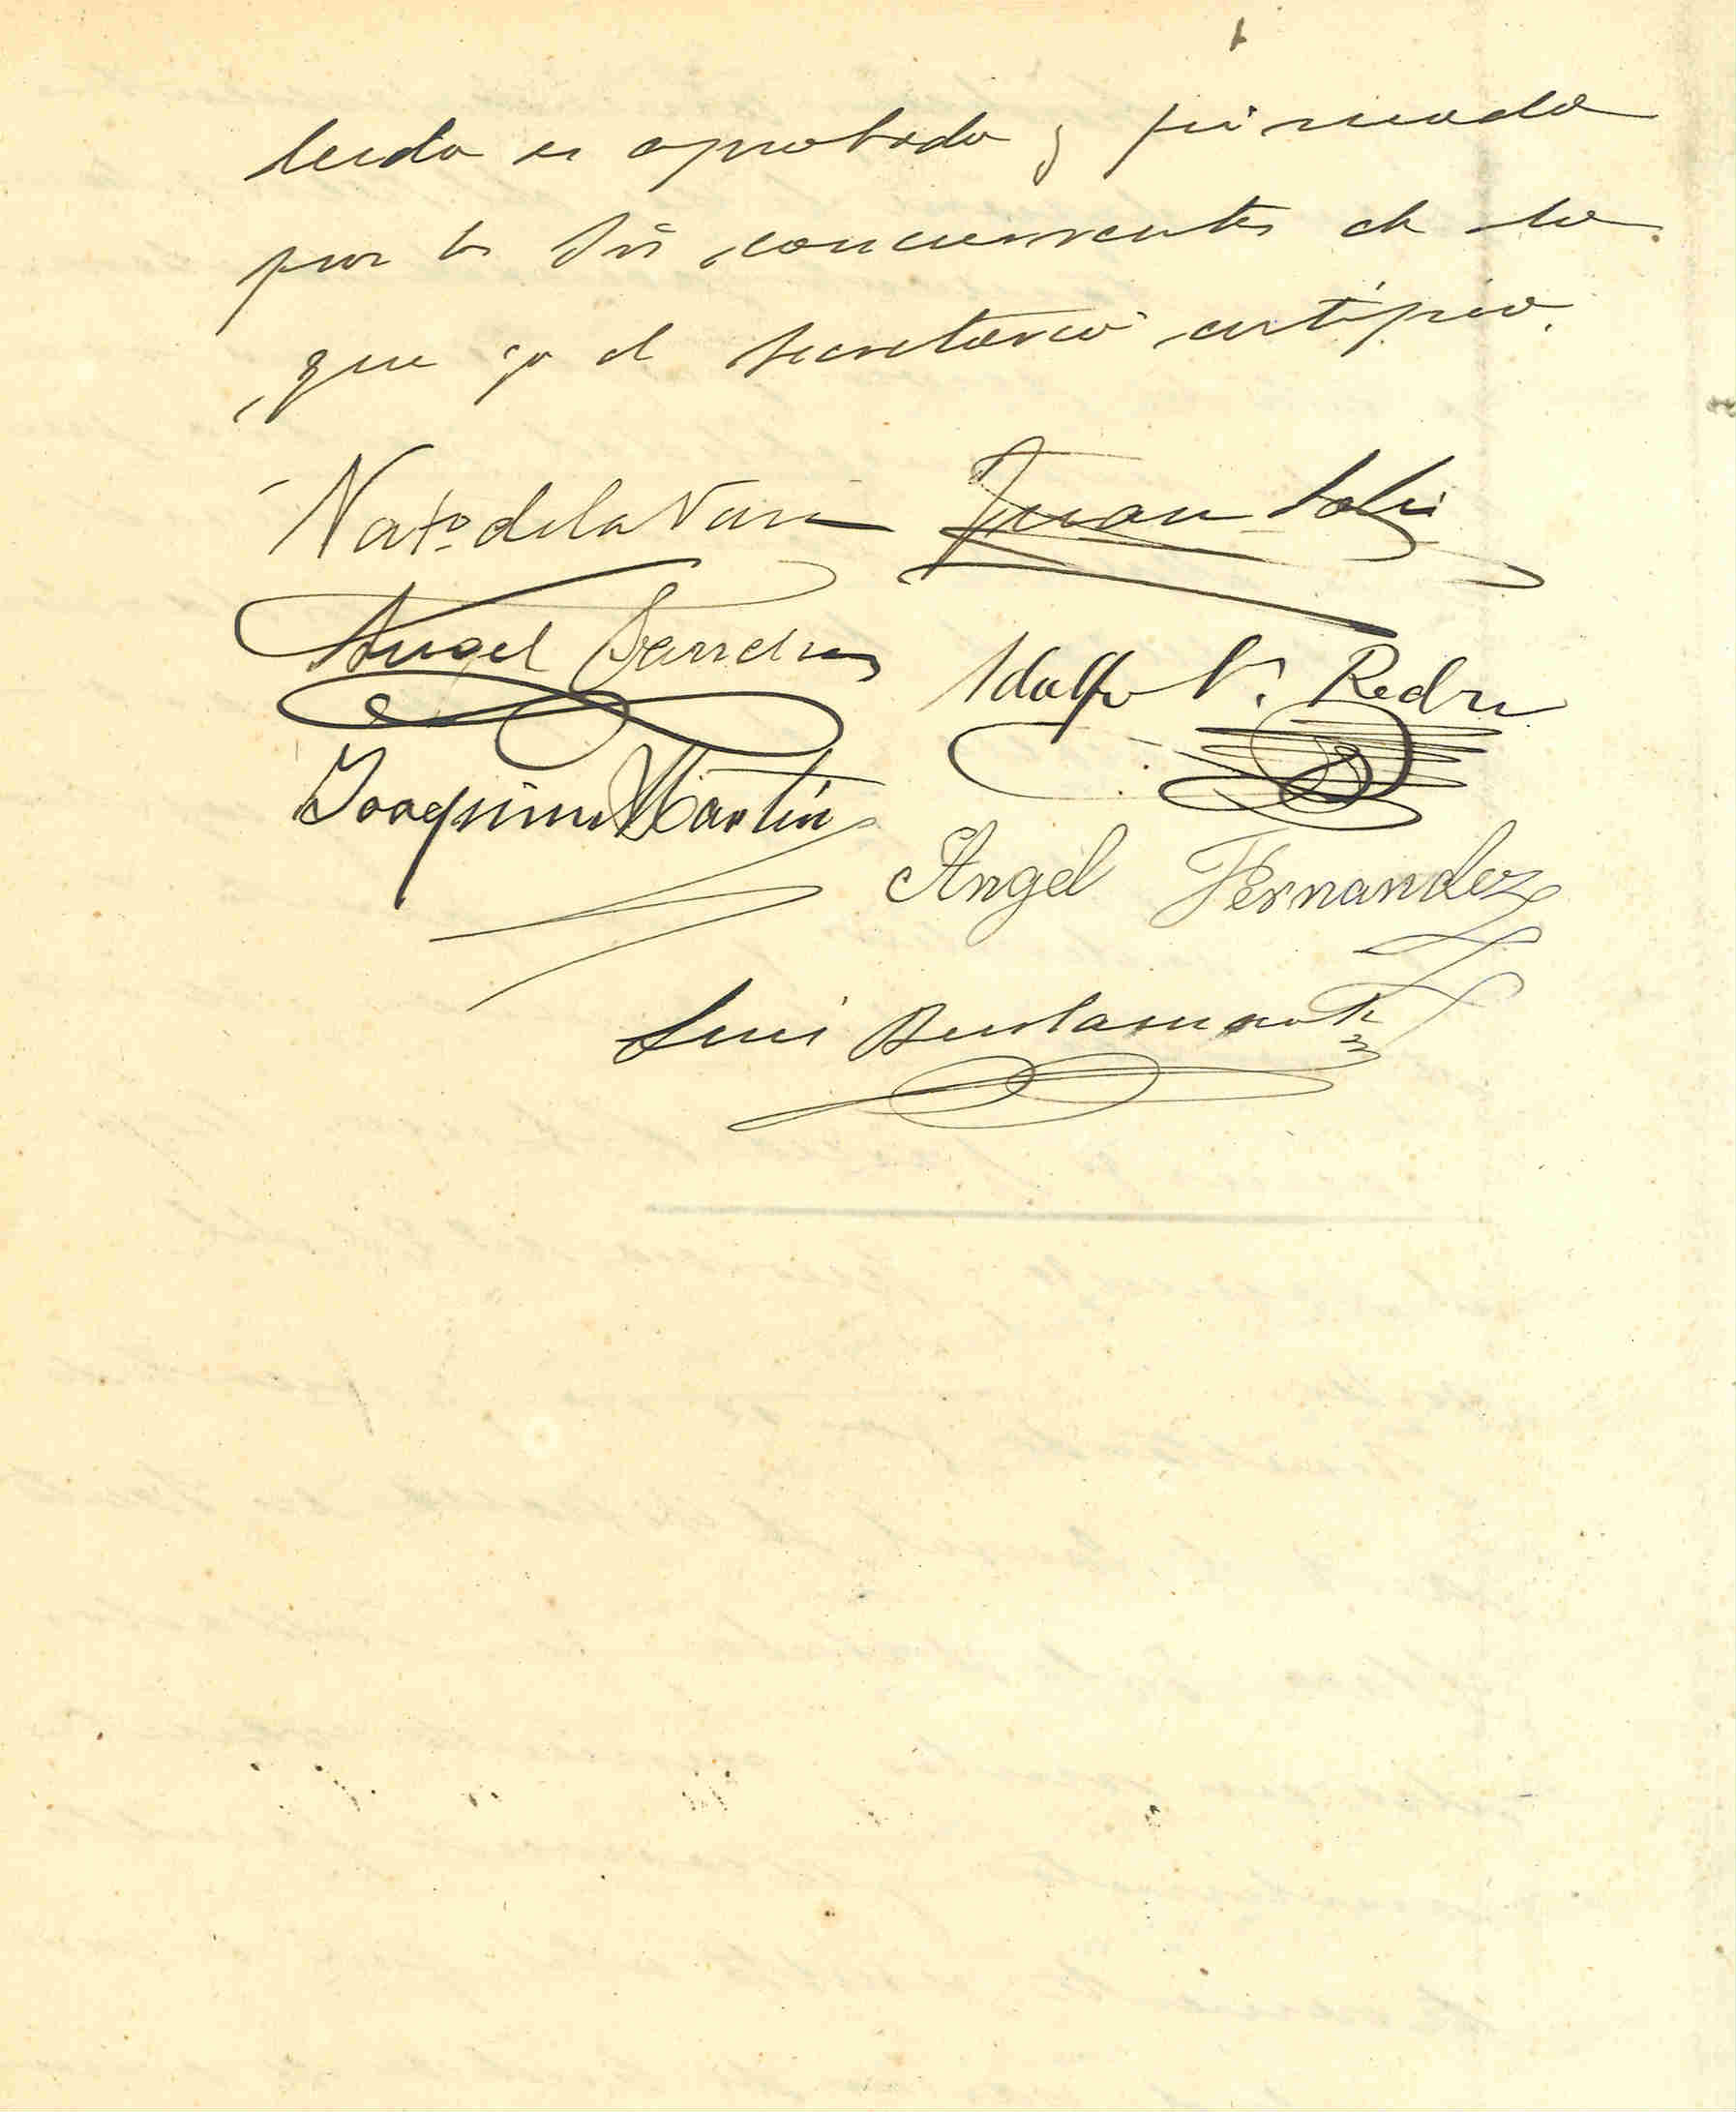 leida es aprobada y firmada
por los Sres concurrentes de lo
que yo el secretario certifico.
Nato. de la Juan Solis
Angel Adolfo V. Redru
Joaquin Martin
Angel Fernandez
Luis Bustamante